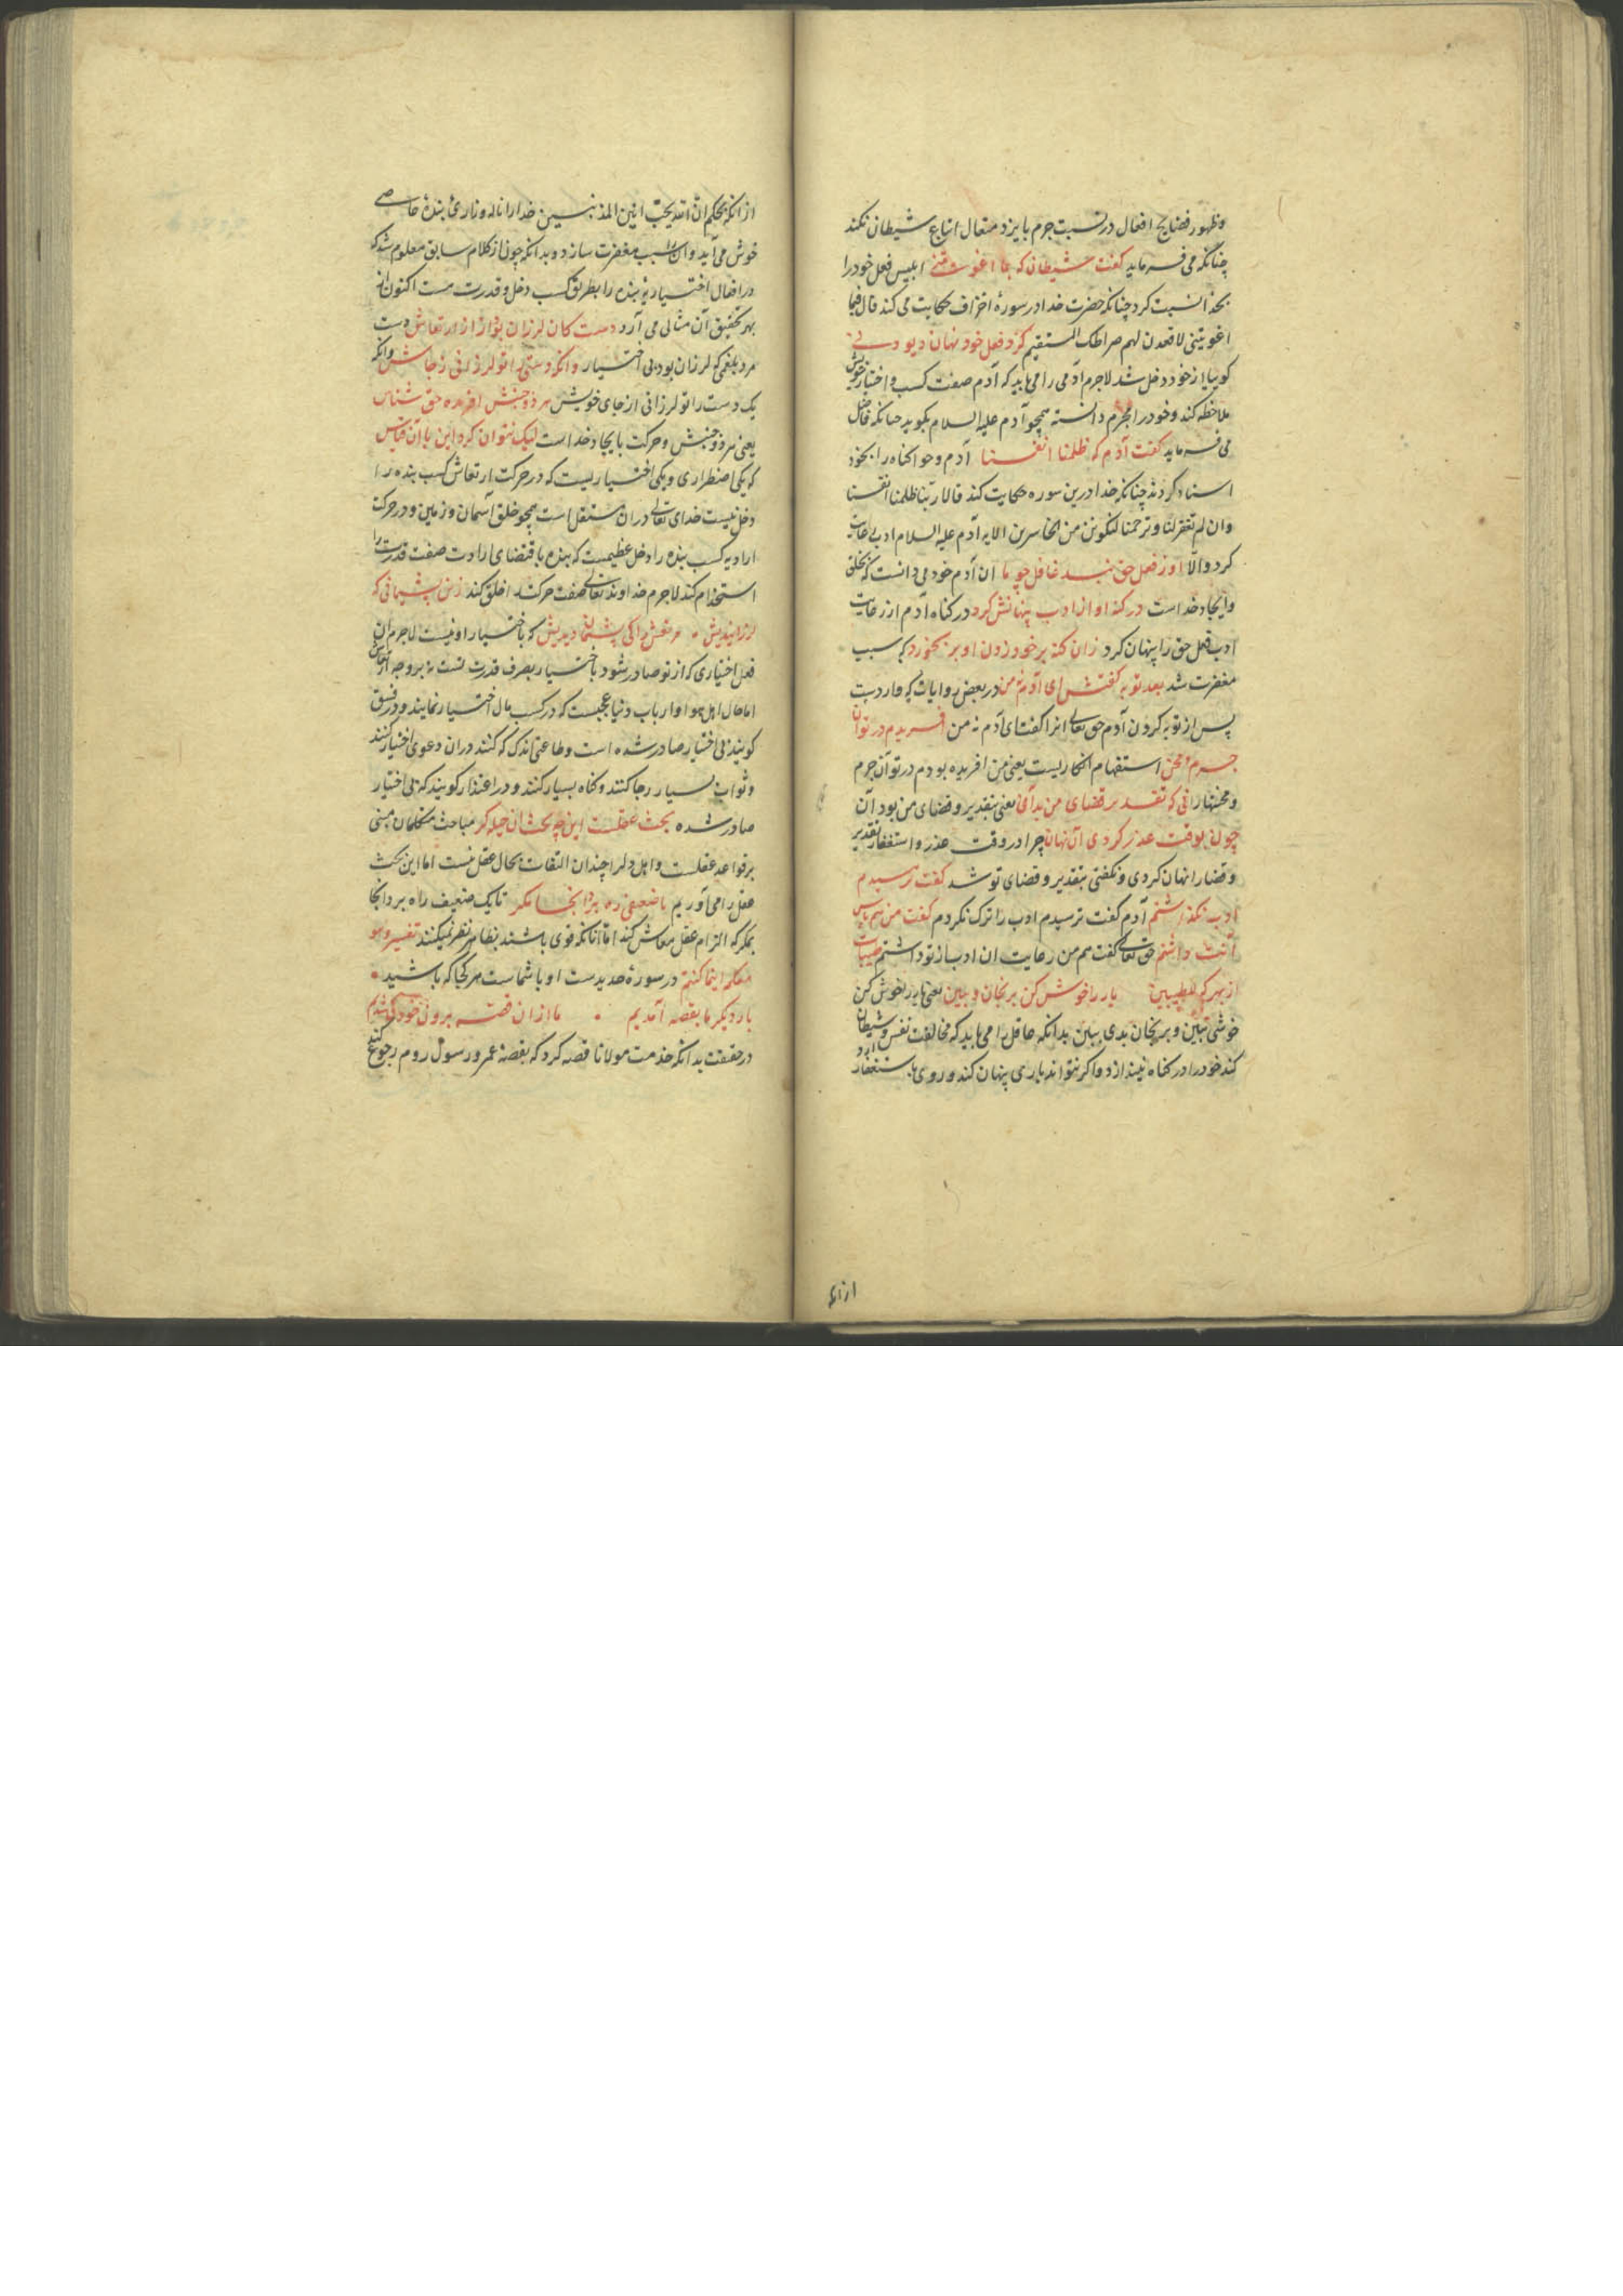 وظهور فضایح افعال در نسبت جرم بایزد متعال اتباع شیطان نکند
چنانکه می فرماید کفت شیطان که بما اغویتنی ابلیس فعل خود را
بخدا نسبت کرد چنانکه حضرت خدا در سورهٔ اعراف حکایت می کند قال فبما
اغویتنی لاقعدن لهم صراطک المستقیم کرد فعل خود نهان دیو دنی
کویا از خود دخل شد لاجرم آدمی را می باید که آدم صفت کسب و اختیار خویش
ملاحظه کند و خود را مجرم دانسته همچو آدم علیه السلام بکوید چنانکه قائل
می فرماید کفت آدم که ظلمنا انفسنا آدم و حوا کناه را بخود
اسناد کردند چنانکه خدا درین سوره حکایت کند قالا ربنا ظلمنا انفسنا
وان لم تغفر لنا وترحمنا لنکونن من الخاسرین الایه آدم علیه السلام ادب رعایت
کرد والا او ز فعل حق نبد غافل چو ما ان آدم خود می دانست که بخلق
وایجاد خداست در کنه او از ادب پنهانش کرد در کناه آدم از رعایت
ادب فعل حق را پنهان کرد زان کنه برخود زدن او بر بخورد که سبب
مغفرت شد بعد توبه کفتش ای آدم نه من در بعض روایات که واردست
پس از توبه کردن آدم حق تعالی انرا کفت ای آدم نه من افریدم در تو ان
جرم و محن استفهام انکاریست یعنی من افریده بودم در تو آن جرم
و محنتها را نی که تقدیر و قضای من بد آن یعنی بتقدیر و قضای من بود آن
چون بوقت عذر کردی آن نهان چرا در وقت عذر و استغفار تقدیر
و قضا را نهان کردی و نکفتی بتقدیر و قضای تو شد کفت ترسیدم
ادب نکذاشتم آدم کفت ترسیدم ادب را ترک نکردم کفت من هم پاس
آنت داشتم حق تعالی کفت هم من رعایت ان ادب از تو داشتم طیبات
از بهر که للطیبین یار را خوش کن برنجان و ببین یعنی یار را خوش کن
خوشی ببین و برنجان بدی ببین بدانکه عاقل را می باید که مخالفت نفس و شیطان
کند خود را در کناه نیندازد و اکر نتواند باری پنهان کند و روی باستغفار آرد
ازانکه
ازانکه بحکم انّ الله یحبّ انین المذنبین خدا را ناله و زاریٔ بندهٔ عاصی
خوش می آید و آن سبب مغفرت سازد و بدانکه چون از کلام سابق معلوم شد که
در افعال اختیاریه بنده را بطریق کسب دخل و قدرت هست اکنون از
بهر تحقیق آن مثالی می آرد دست کان لرزان بود از ارتعاش دست
مرد بلغمی که لرزان بود بی اختیار وانکه دستی را تو لرزانی ز جاش وانکه
یک دست را تو لرزانی از جای خویش هر دو جنبش افریده حق شناس
یعنی هر دو جنبش و حرکت بایجاد خداست لیک نتوان کرد این با آن قیاس
که یکی اضطراری و یکی اختیاریست که در حرکت ارتعاش کسب بنده را
دخل نیست خدای تعالی دران مستقل است همچو خلق آسمان و زمین و در حرکت
ارادیه کسب بنده را دخل عظیمست که بنده باقتضای ارادت صفت قدرت را
استخدام کند لاجرم خداوند تعالی صفت حرکت را خلق کند زین پشیمانی که
لرزانیدیش مرتعش را کی پشیمان دیدیش که باختیار او نیست لاجرم ان
فعل اختیاری که از تو صادر شود باختیار بصرف قدرت تست نه بر وجه ارتعاش
اما حال اهل هوا و ارباب دنیا عجبست که در کسب مال اختیار نمایند و در فسق
کویند بی اختیار صادر شده است و طاعتی اندک که کنند دران دعوی اختیار کنند
و ثواب بسیار رجا کنند و کناه بسیار کنند و در اعتذار کویند که بی اختیار
صادر شده بحث عقلست این چه بحث ان حیله کر مباحث متکلمان مبنی
بر قواعد عقلست و اهل دل را چندان التفات بحال عقل نیست اما این بحث
عقل را می آوریم تا ضعیفی ره برد انجا مکر تا یک ضعیف راه برد انجا
بمکر که الزام عقل معاش کند اما انانکه قوی باشند بظاهر نظر نمیکنند تفسیر وهو
معکم اینما کنتم در سورهٔ حدیدست او با شماست هر کجا که باشید
بار دیکر ما بقصه آمدیم ما ازان قصه برون خود کی شدیم
در حقیقت بدانکه خدمت مولانا قصد کرد که بقصهٔ عمر و رسول روم رجوع کند